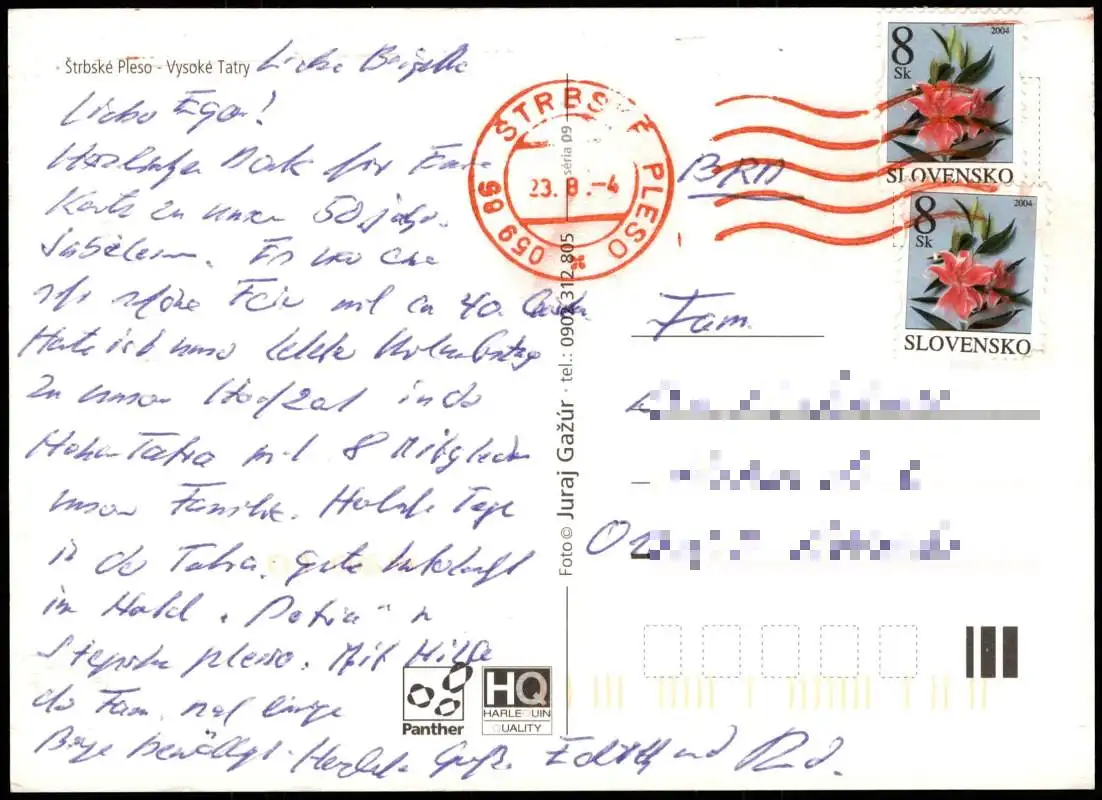 Štrbské Pleso - Vysoké Tatry Liebe
Liebe
Herzlichen Dank für Eure
Karte zu unserem 50 jähr.
Jubiläum. Es war eine
sehr schöne Feier mit ca 40
Heute ist unser letzter
zu unserer Hochzeit in der
Hohen Tatra mit 8 Mitgliedern
unserer Familie. Herrliche Tage
in der Tatra, gute Unterkunft
im Hotel „Patria" in
pleso. Mit Hilfe
der Fam. noch einige
Berge bewältigt. Herzliche Grüße Edith und
Panther
HQ
HARLEQUIN
QUALITY
Foto © Juraj Gažúr · tel.: 0902 312 805 séria 09
ŠTRBSKÉ PLESO
059 86
23. 8. -4
8
Sk
2004
SLOVENSKO
8
Sk
2004
SLOVENSKO
BRD
Fam.